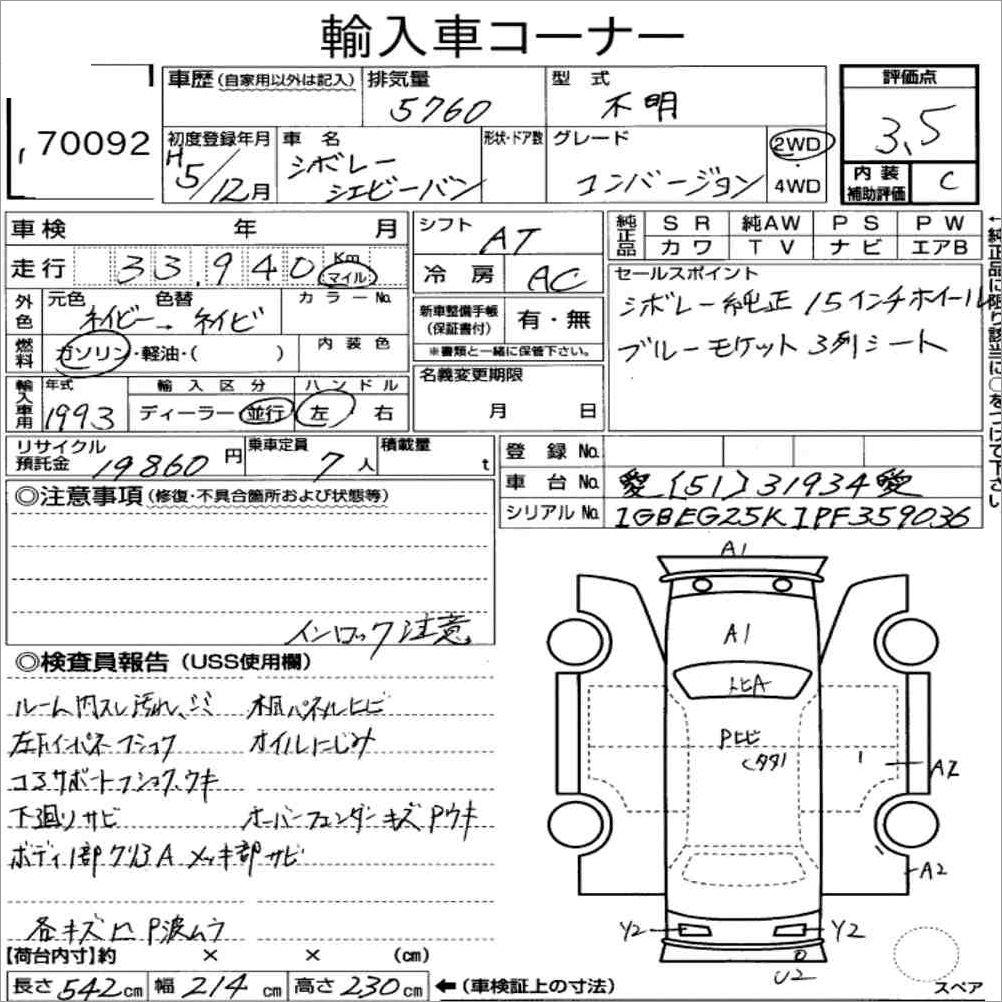 輸入車コーナー
70092
車歴(自家用以外は記入) 排気量 5760 型式 不明
評価点 3.5
初度登録年月 H5/12月 車名 シボレー シェビーバン 形状・ドア数 グレード コンバージョン 2WD 4WD
内装補助評価 C
車検 年 月
シフト AT
純正品 SR 純AW PS PW
カワ TV ナビ エアB
走行 33,940 Km マイル
冷房 AC
セールスポイント
シボレー純正 15インチホイール
ブルーモケット 3列シート
外色 元色 ネイビー 色替 → ネイビ カラーNo.
新車整備手帳(保証書付) 有・無
※書類と一緒に保管下さい。
燃料 ガソリン・軽油・( ) 内装色
名義変更期限 月 日
輸入車用 年式 1993 輸入区分 ディーラー 並行 ハンドル 左 右
←純正品に限り該当に○をつけて下さい
リサイクル預託金 19860円 乗車定員 7人 積載量 t
登録No.
車台No. 愛〔51〕31934愛
シリアルNo. 1GBEG25K1PF359036
◎注意事項(修復・不具合箇所および状態等)
インロック注意
◎検査員報告(USS使用欄)
ルーム内スレ汚れ、シミ 木目パネルヒビ
左下インパネフショク オイルにじみ
コアサポートフショク、ウキ
下廻りサビ オーバーフェンダーキズPウキ
ボディ1部クリアA メッキ部サビ
各キズ凹 P波ムラ
【荷台内寸】約 × × (cm)
長さ542cm 幅214cm 高さ230cm ←(車検証上の寸法)
A1
A1
トヒA
Pヒビ
A2
A2
Y2
Y2
U2
スペア